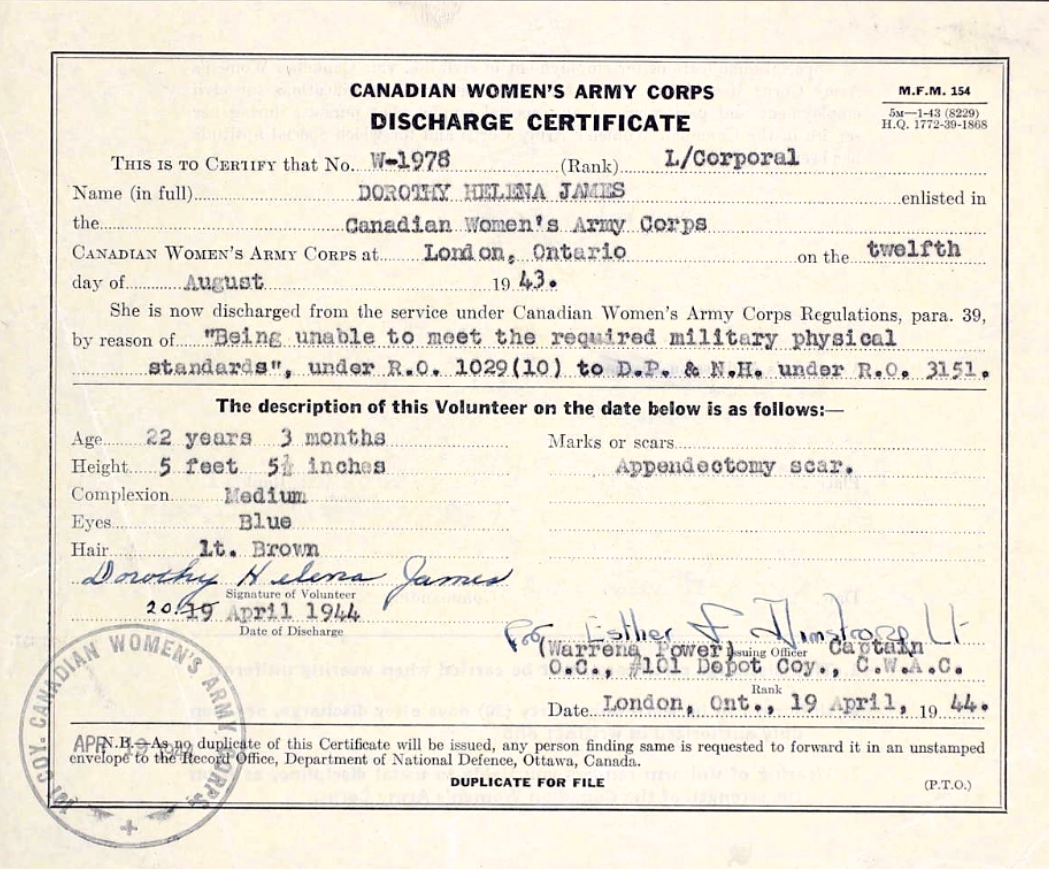 CANADIAN WOMEN'S ARMY CORPS
DISCHARGE CERTIFICATE
M.F.M. 154
5M—1-43 (8229)
H.Q. 1772-39-1868
THIS IS TO CERTIFY that No. W-1978 (Rank) L/Corporal
Name (in full) DOROTHY HELENA JAMES enlisted in
the Canadian Women's Army Corps
CANADIAN WOMEN'S ARMY CORPS at London, Ontario on the twelfth
day of August 19 43.
She is now discharged from the service under Canadian Women's Army Corps Regulations, para. 39,
by reason of "Being unable to meet the required military physical
standards", under R.O. 1029(10) to D.P. & N.H. under R.O. 3151.
The description of this Volunteer on the date below is as follows:—
Age 22 years 3 months
Height 5 feet 5½ inches
Complexion Medium
Eyes Blue
Hair lt. Brown
Marks or scars
Appendectomy scar.
Dorothy Helena James
Signature of Volunteer
20. 19 April 1944
Date of Discharge
Esther F Lt
(Warrena Power) Issuing Officer Captain
O.C., #101 Depot Coy., C.W.A.C.
Rank
Date London, Ont., 19 April, 19 44.
N.B.—As no duplicate of this Certificate will be issued, any person finding same is requested to forward it in an unstamped
envelope to the Record Office, Department of National Defence, Ottawa, Canada.
DUPLICATE FOR FILE
(P.T.O.)
COY. CANADIAN WOMEN'S ARMY CORPS
APR 19 1944